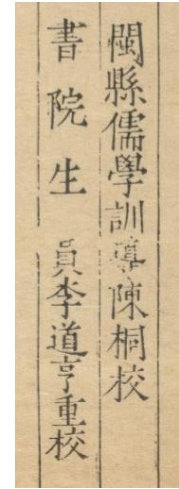 閩縣儒學訓導陳桐校
書院生員李道亨重校